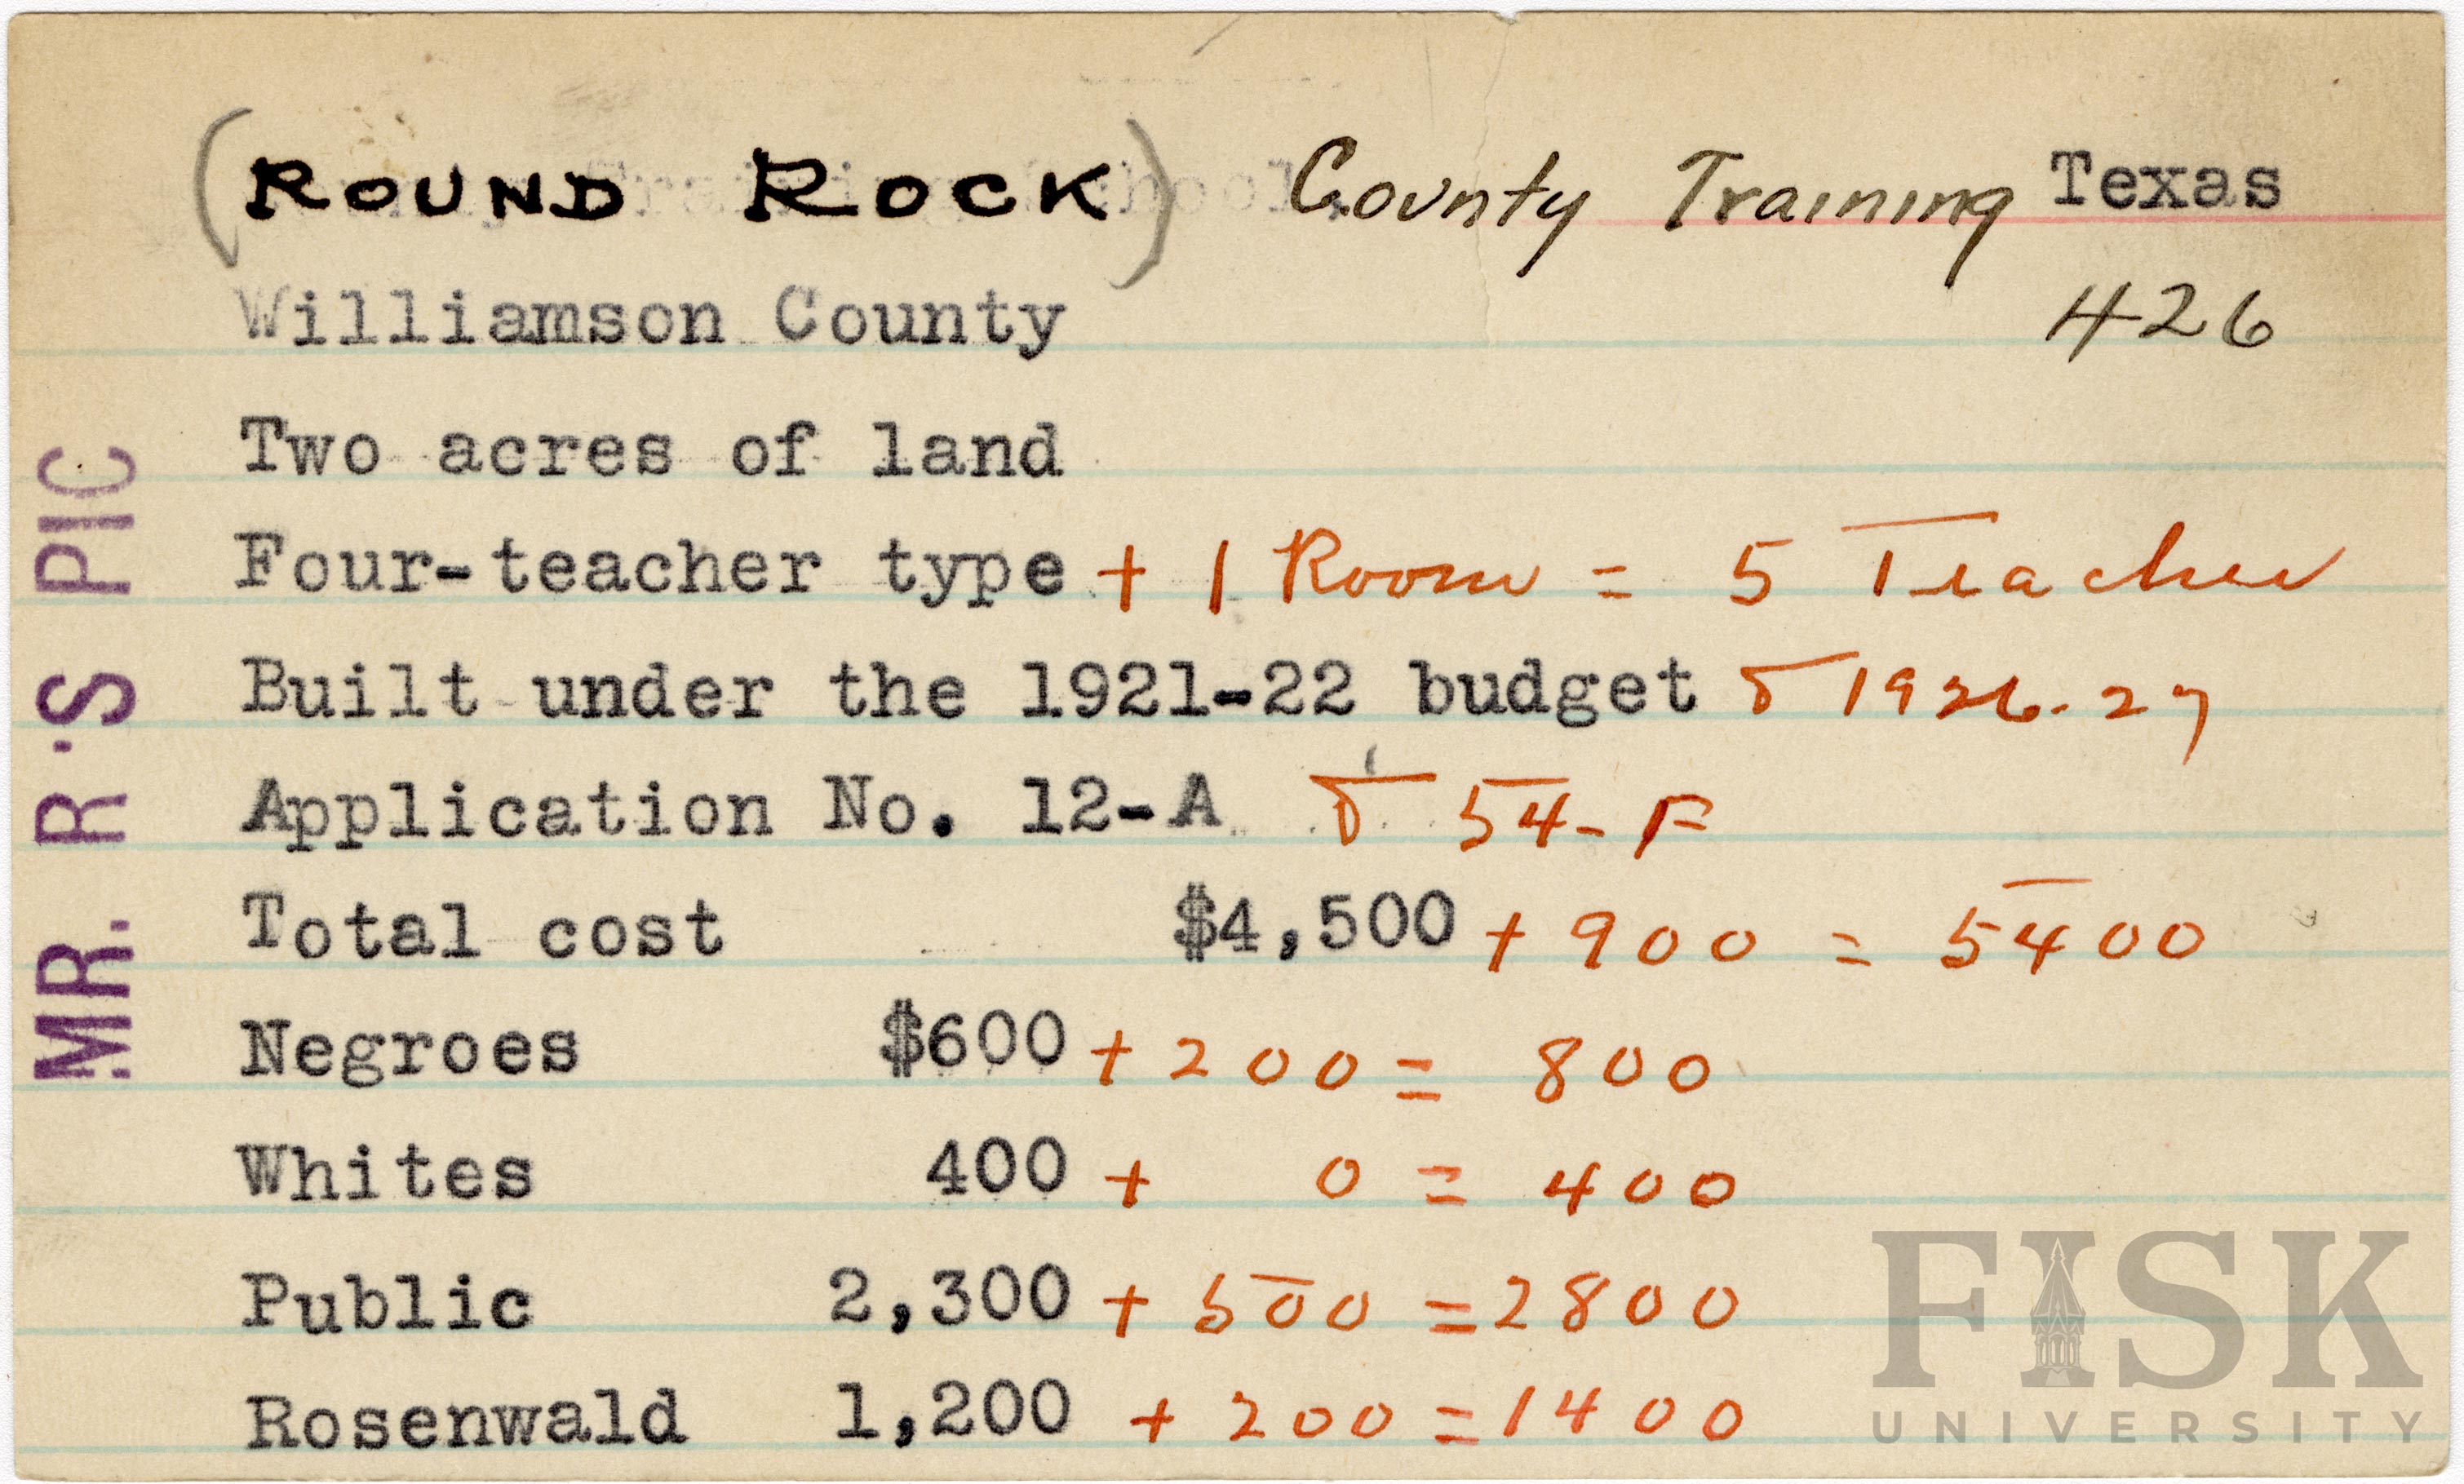 (ROUND ROCK) County Training Texas
Williamson County 426
Two acres of land
Four-teacher type + 1 Room = 5 Teacher
Built under the 1921-22 budget & 1926-27
Application No. 12-A & 54-F
Total cost $4,500 + 900 = 5400
Negroes $600 + 200 = 800
Whites 400 + 0 = 400
Public 2,300 + 500 = 2800
Rosenwald 1,200 + 200 = 1400
MR. R·S PIC
FISK
UNIVERSITY